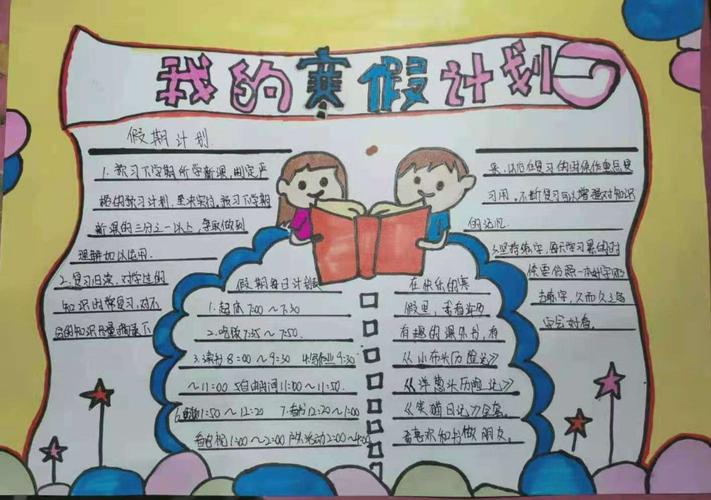 我的寒假计划
假期计划
1.预习下学期所学新课,制定严
格的预习计划,坚决实行,预习下学期
新课的三分之一以上,争取做到
理解加以运用
2.复习旧课,对学过的
知识时常复习,对不
会的知识尽量搞懂下
来,以后在复习的时候作重点复
习用。不断复习可以增强对知识
的记忆.
3.坚持练字,每天学习累的时
候要仿照一本好字帖
去练字,久而久之
会好看.
假期每日计划表
1.起床7:00~7:30
2.吃饭7:35~7:50.
3.读书8:00~9:30 4.写作业9:30
~11:00 5自由时间11:00~11:50.
11:50~12:20 7.12:20~1:00
看电视1:00~2:00 户外活动2:00~4:00
在快乐的寒
假里,我看许多
有趣的课外书,有
《小布头历险记》
《洋葱头历险记》
《笑猫日记》全套。
喜欢和书做朋友。